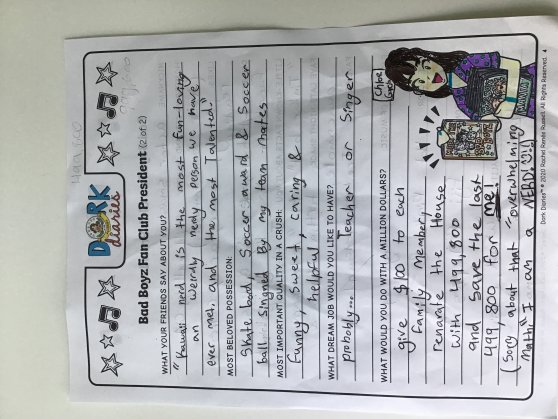 DORK
diaries
Bad Boyz Fan Club President (2 of 2)
WHAT YOUR FRIENDS SAY ABOUT YOU?
"Kawaii nerd is the most fun-loving
an weirdly nerdy person we have
ever met, and the most Talented."
MOST BELOVED POSSESSION:
Skate board, Soccer award & Soccer
ball singned By my team mates
MOST IMPORTANT QUALITY IN A CRUSH:
Funny, sweet, caring &
helpful
WHAT DREAM JOB WOULD YOU LIKE TO HAVE?
probobly... Teacher or Singer
WHAT WOULD YOU DO WITH A MILLION DOLLARS?
give $100 to each
family member,
renarate the House
with 499,800
and save the last
499,800 for me!
(Sorry about that "overwhelming
Math" I am a NERD!
Chloe
Dork Diaries™ © 2020 Rachel Renée Russell. All Rights Reserved. 4